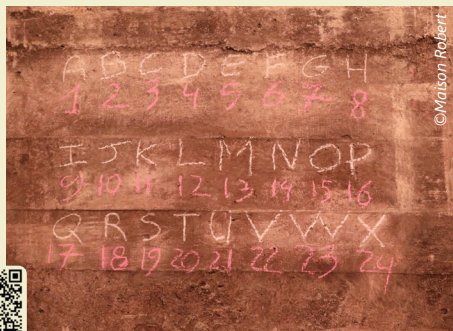 A B C D E F G H
1 2 3 4 5 6 7 8
I J K L M N O P
9 10 11 12 13 14 15 16
Q R S T U V W X
17 18 19 20 21 22 23 24
©Maison Robert